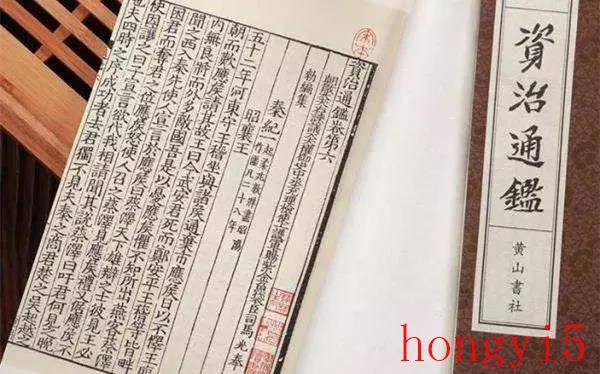 資治通鑑卷第六
朝散大夫右諫議大夫權御史中丞充理檢使上護軍賜紫金魚袋臣司馬光奉
勅編集
秦紀一
凡二十八年
昭襄王
五十二年河東守王稽坐與諸侯通棄市應侯日以不懌王
朝而歎應侯請其故王曰今武安君死而鄭安平王稽等皆畔
內無良將而外多敵國吾是以憂應侯懼不知所出燕客蔡澤
聞之西入秦先使人宣言於應侯曰蔡澤天下雄辯之士彼見王必
困君而奪君之位應侯怒使人召之蔡澤見應侯禮又倨應侯不
快因讓之曰子宣言欲代我相請聞其說蔡澤曰吁君何見之晚
也夫四時之序成功者去君獨不見夫秦之商君楚之吳起越之
資治通鑑
黄山書社
hongyi5